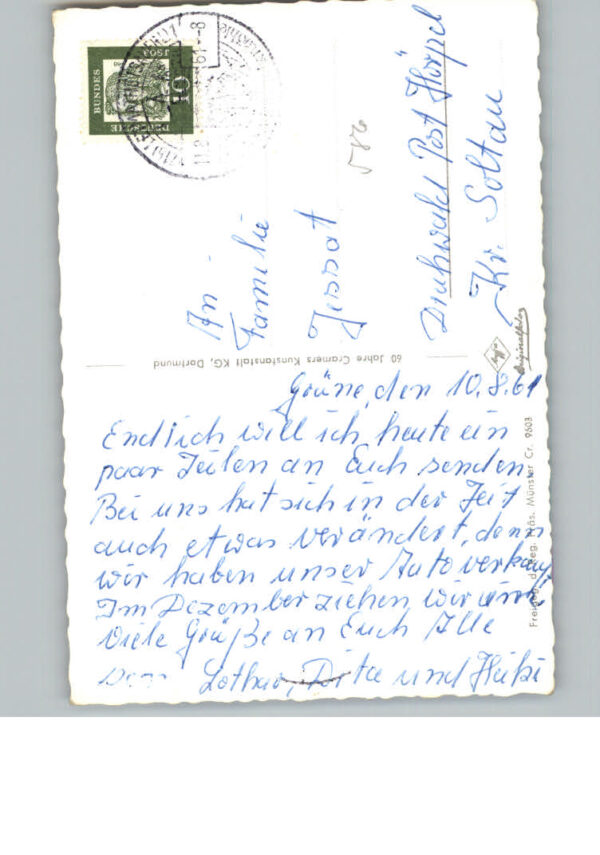 Grüne, den 10.8.61
Endlich will ich heute ein
paar Zeilen an Euch senden
Bei uns hat sich in der Zeit
auch etwas verändert, denn
wir haben unser Auto verkauf
Im Dezember ziehen wir um
Viele Grüße an Euch Alle
Lothar, und
An
Familie
Jessat
Druhwald Post Hörpel
Kr. Soltau
586
60 Jahre Cramers Kunstanstalt KG, Dortmund
Agfa
Originalfoto
Münster Cr. 9603
DEUTSCHE
BUNDES
10